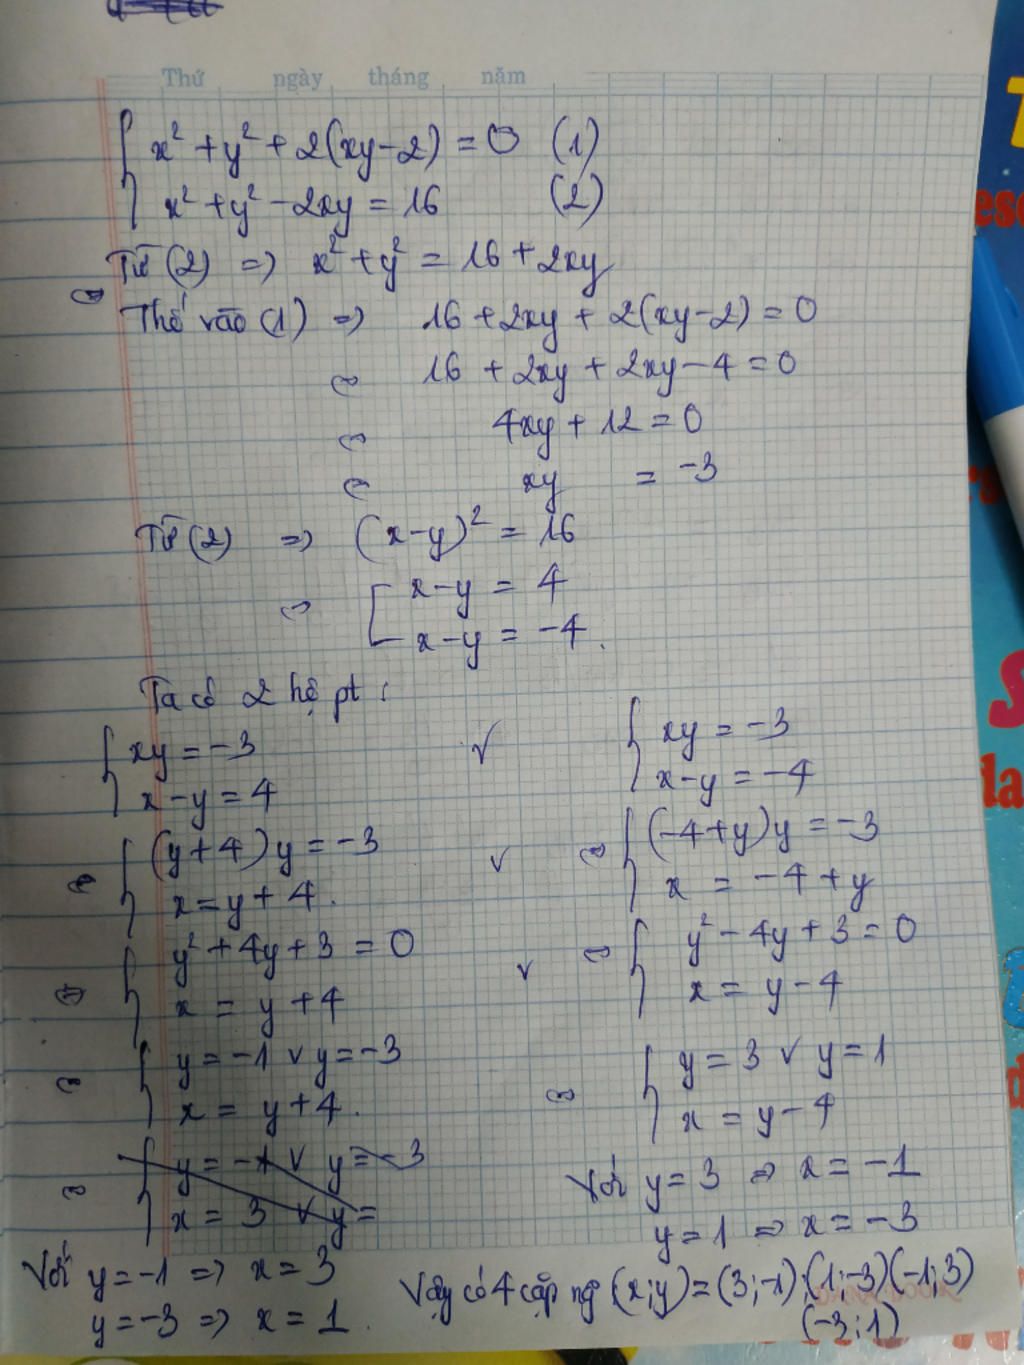 Thứ ngày tháng năm
{ x² + y² + 2(xy-2) = 0 (1)
x² + y² - 2xy = 16 (2)
Từ (2) => x² + y² = 16 + 2xy
Thế vào (1) => 16 + 2xy + 2(xy-2) = 0
⇔ 16 + 2xy + 2xy - 4 = 0
⇔ 4xy + 12 = 0
⇔ xy = -3
Từ (2) => (x-y)² = 16
⇔ [ x-y = 4
x-y = -4.
Ta có 2 hệ pt:
{ xy = -3 v { xy = -3
x-y = 4 x-y = -4
⇔ { (y+4)y = -3 v ⇔ { (-4+y)y = -3
x = y + 4. x = -4 + y
⇔ { y² + 4y + 3 = 0 v ⇔ { y² - 4y + 3 = 0
x = y + 4 x = y - 4
⇔ { y = -1 v y = -3 ⇔ { y = 3 v y = 1
x = y + 4. x = y - 4
⇔ { y = -1 v y = -3
x = 3 v y =
Với y = 3 => x = -1
y = 1 => x = -3
Với y = -1 => x = 3
y = -3 => x = 1.
Vậy có 4 cặp ng (x;y) = (3;-1);(1;-3)(-1;3)
(-3;1)